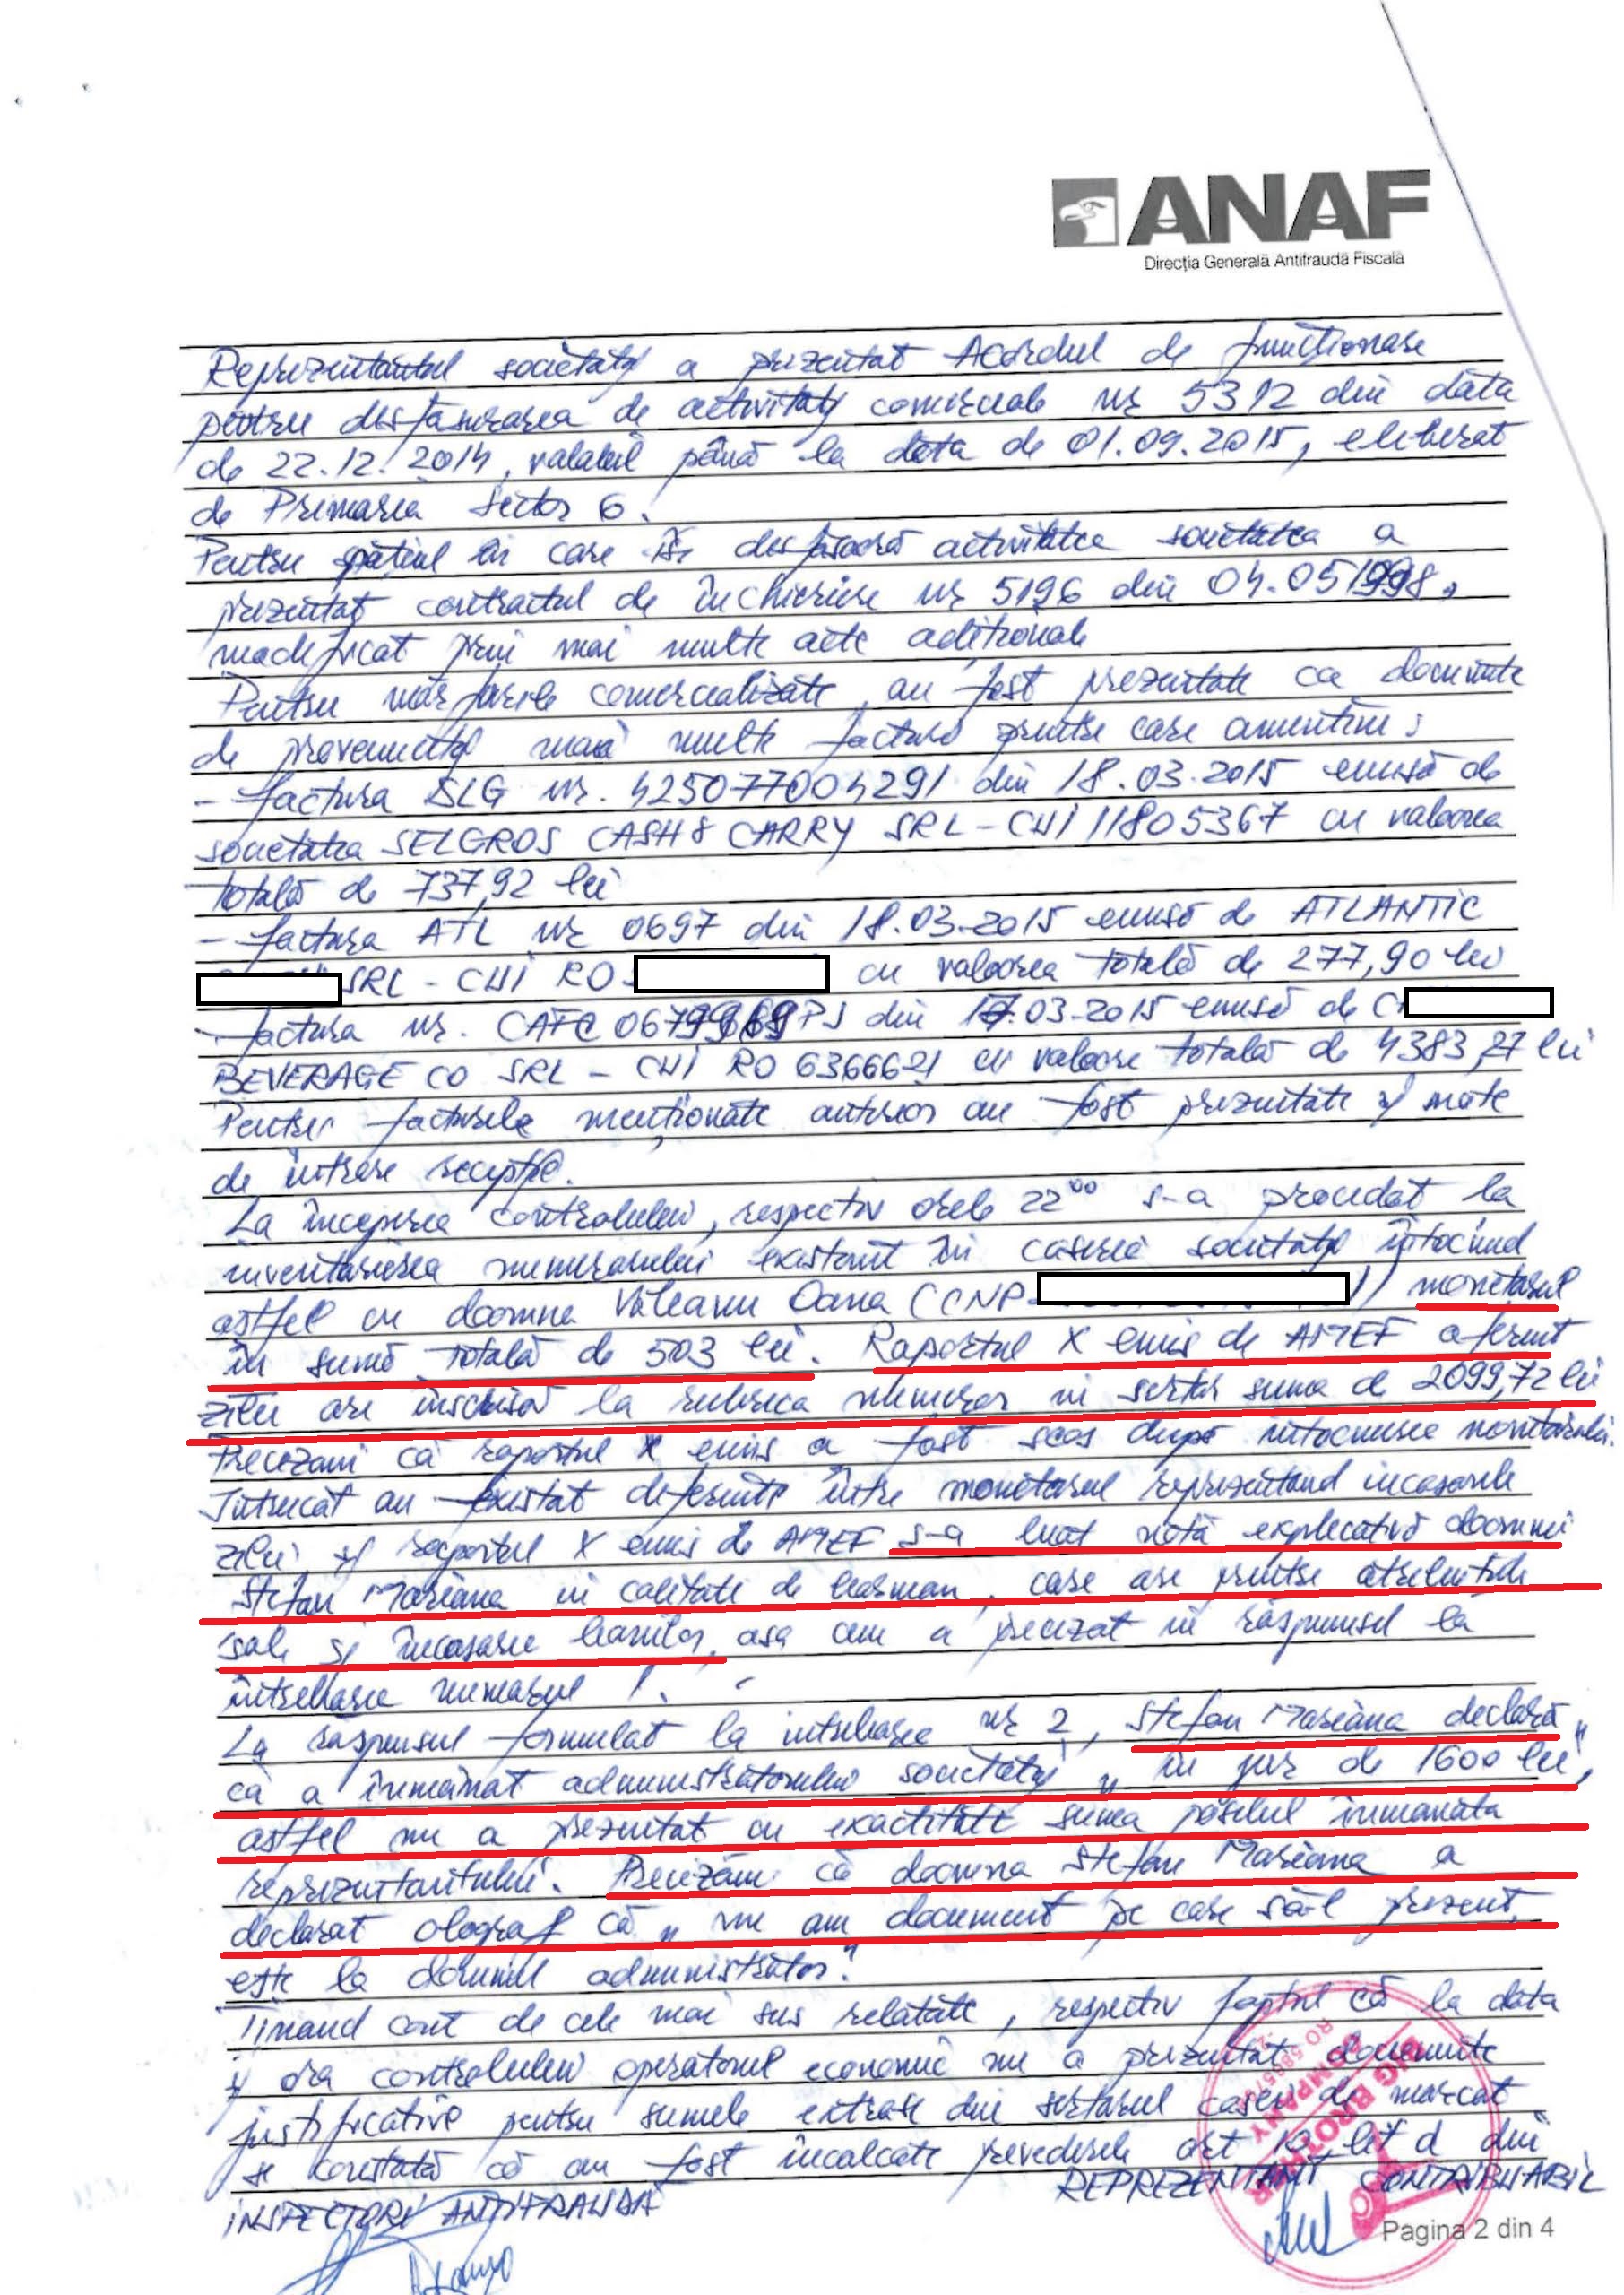 ANAF
Direcția Generală Antifraudă Fiscală
Reprezentantul societății a prezentat Acordul de funcționare
pentru desfășurarea de activități comerciale nr 5312 din data
de 22.12.2014, valabil până la data de 01.09.2015, eliberat
de Primăria Sector 6.
Pentru spațiul în care își desfășoară activitatea societatea a
prezentat contractul de închiriere nr 5196 din 04.05.1998,
modificat prin mai multe acte adiționale
Pentru mărfurile comercializate au fost prezentate ca documente
de proveniență mai multe facturi printre care amintim:
- factura SLG nr. 425077004291 din 18.03.2015 emisă de
societatea SELGROS CASH & CARRY SRL - CUI 11805367 cu valoarea
totală de 737,92 lei
- factura ATL nr 0697 din 18.03.2015 emisă de ATLANTIC
SRL - CUI RO cu valoarea totală de 277,90 lei
- factura nr. CAFC PJ din 17.03.2015 emisă de C
BEVERAGE CO SRL - CUI RO 6366621 cu valoare totală de 4383,27 lei
Pentru facturile menționate anterior au fost prezentate și note
de intrare recepție.
La începerea controlului, respectiv orele 22⁰⁰ s-a procedat la
inventarierea numerarului existent în caseria societății întocmind
astfel cu doamna Vîleanu Oana (CNP ) monetarul
în sumă totală de 503 lei. Raportul X emis de AMEF aferent
zilei are înscrisă la rubrica numerar în sertar suma de 2099,72 lei
Precizăm că raportul X emis a fost scos după întocmirea monetarului.
Întrucât au existat diferențe între monetarul reprezentând încasările
zilei și raportul X emis de AMEF s-a luat notă explicativă doamnei
Ștefan Mariana în calitate de barman, care are printre atribuțiile
sale și încasarea banilor, așa cum a precizat în răspunsul la
întrebarea numărul 1.
La răspunsul formulat la întrebarea nr 2, Ștefan Mariana declară
că a înmânat administratorului societății „în jur de 1600 lei",
astfel nu a prezentat cu exactitate suma posibil înmânată
reprezentantului. Precizăm că doamna Ștefan Mariana a
declarat olograf că „nu am document pe care să-l prezint,
este la domnul administrator."
Ținând cont de cele mai sus relatate, respectiv faptul că la data
și ora controlului operatorul economic nu a prezentat documente
justificative pentru sumele extrase din sertarul casei de marcat
se constată că au fost încălcate prevederile art 10, lit d din
INSPECTORI ANTIFRAUDĂ REPREZENTANT CONTRIBUABIL
BIG BROTHER
COMPANY
Pagina 2 din 4